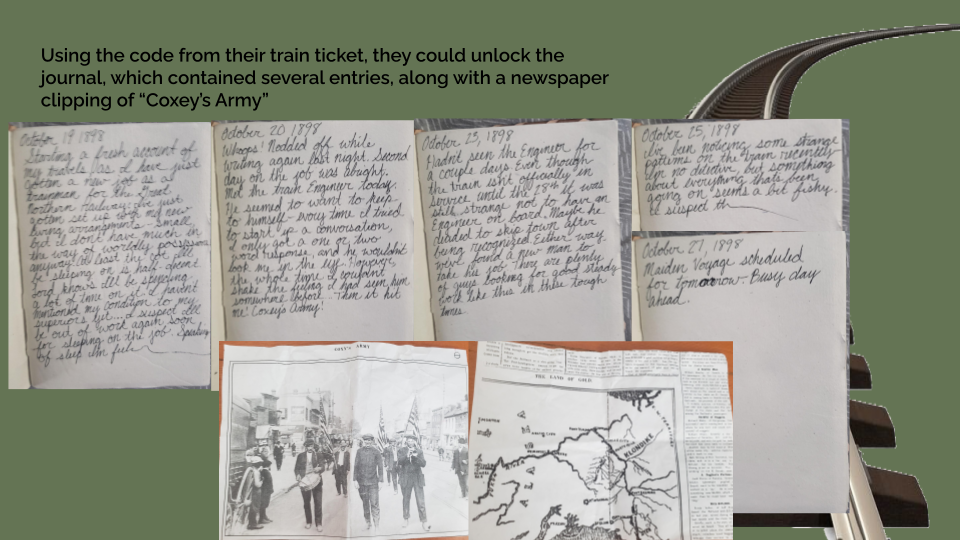 Using the code from their train ticket, they could unlock the
journal, which contained several entries, along with a newspaper
clipping of “Coxey’s Army”
October 19 1898
Starting a fresh account of
my travels as I have just
gotten a new job as a
trainman for the Great
Northern Railway. I've just
gotten set up with my new
living arrangements. Small,
but I don't have much in
the way of worldly possessions
anyway. At least the cot I'll
be sleeping on is half-decent.
Lord knows I'll be spending
a lot of time on it. I haven't
mentioned my condition to my
superiors yet... I suspect I'll
be out of work again soon
for sleeping on the job. Speaking
of sleep I'm feelin
October 20 1898
Whoops! Nodded off while
writing again last night. Second
day on the job was alright.
Met the train Engineer today.
He seemed to want to keep
to himself - every time I tried
to start up a conversation,
I only got a one or two
word response, and he wouldn't
look me in the eye. However,
the whole time I couldn't
shake the feeling I had seen him
somewhere before. Then it hit
me: Coxey's Army!
October 25, 1898
Hadn't seen the Engineer for
a couple days. Even though
the train isn't officially in
service until the 28th it was
still strange not to have an
Engineer on board. Maybe he
decided to skip town after
being recognized. Either way,
we've found a new man to
take his job. There are plenty
of guys looking for good steady
work like this in these tough
times.
October 25, 1898
I've been noticing some strange
patterns on the train recently.
I'm no detective, but something
about everything thats been
going on seems a bit fishy.
I suspect th
October 27, 1898
Maiden Voyage scheduled
for tomorrow. Busy day
ahead.
COXEY'S ARMY
THE LAND OF GOLD
KLONDIKE
ALA
RIVER